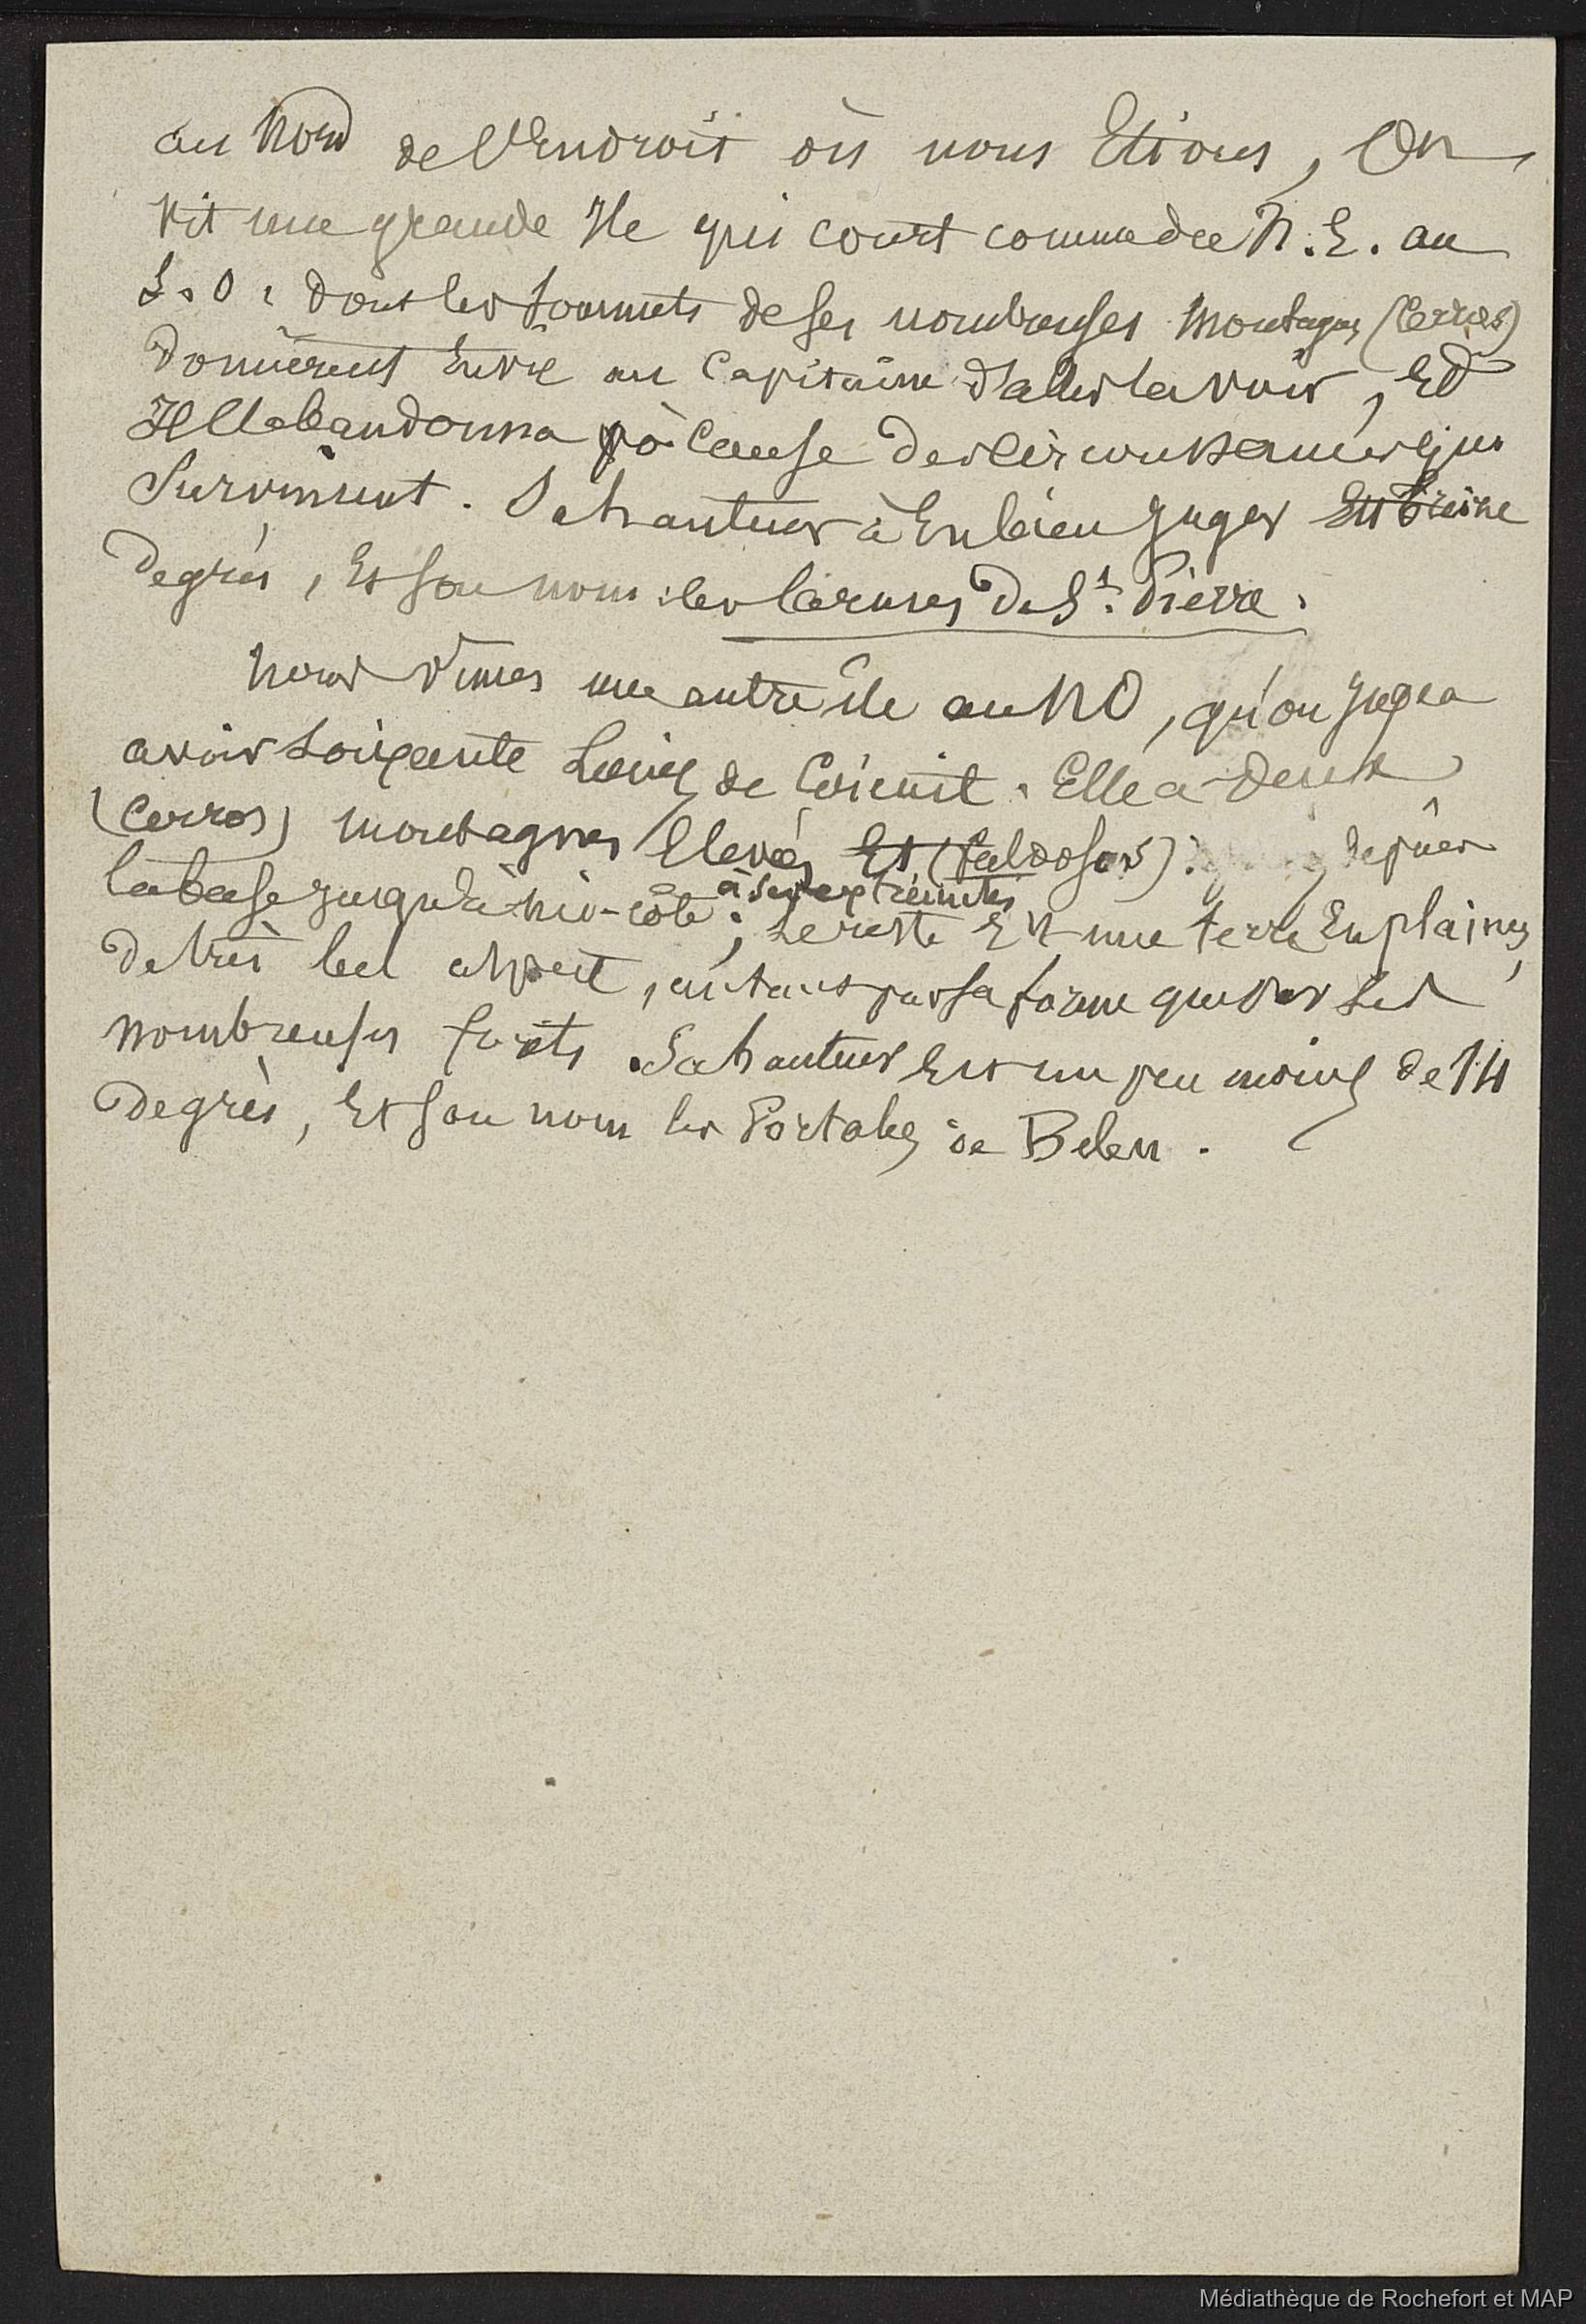 au Nord de l'Endroit où nous Etions, On
vit une grande Ile qui court comme du N.E. au
S.O. dont les sommets de ses nombreuses montagnes (Cerros)
donnèrent Envie au Capitaine d'aller la voir, Et
Il l'abandonna à Cause des circonstances qui
Survinrent. Sa hauteur à En bien Juger Est treize
degrés, Et son nom : les larmes de St. Pierre.
Nous vîmes une autre île au NO, qu'on Jugea
avoir soixante Lieues de Circuit. Elle a deux
(Cerros) montagnes Elevées Et (faldosos) depuis
la base jusqu'à mi-côte à ses extrémités ; Le reste Est une terre En plaines,
de très bel aspect, autant par sa forme que par ses
nombreuses forêts. Sa hauteur Est un peu moins de 14
degrés, Et son nom les Portales de Belen.
Médiathèque de Rochefort et MAP